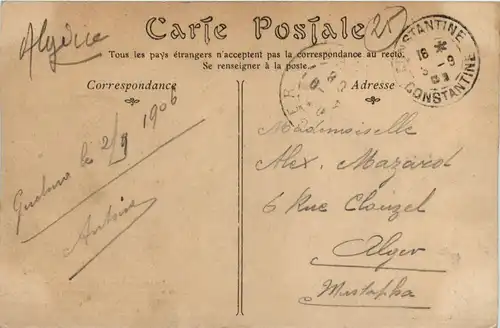 Algérie
Carte Postale
25
Tous les pays étrangers n'acceptent pas la correspondance au recto.
Se renseigner à la poste.
CONSTANTINE
16
CONSTANTINE
Correspondance
Adresse
le 2/9 1906
Antoine
Mademoiselle
Alex. Mazarot
6 Rue Clauzel
Alger
Mustapha